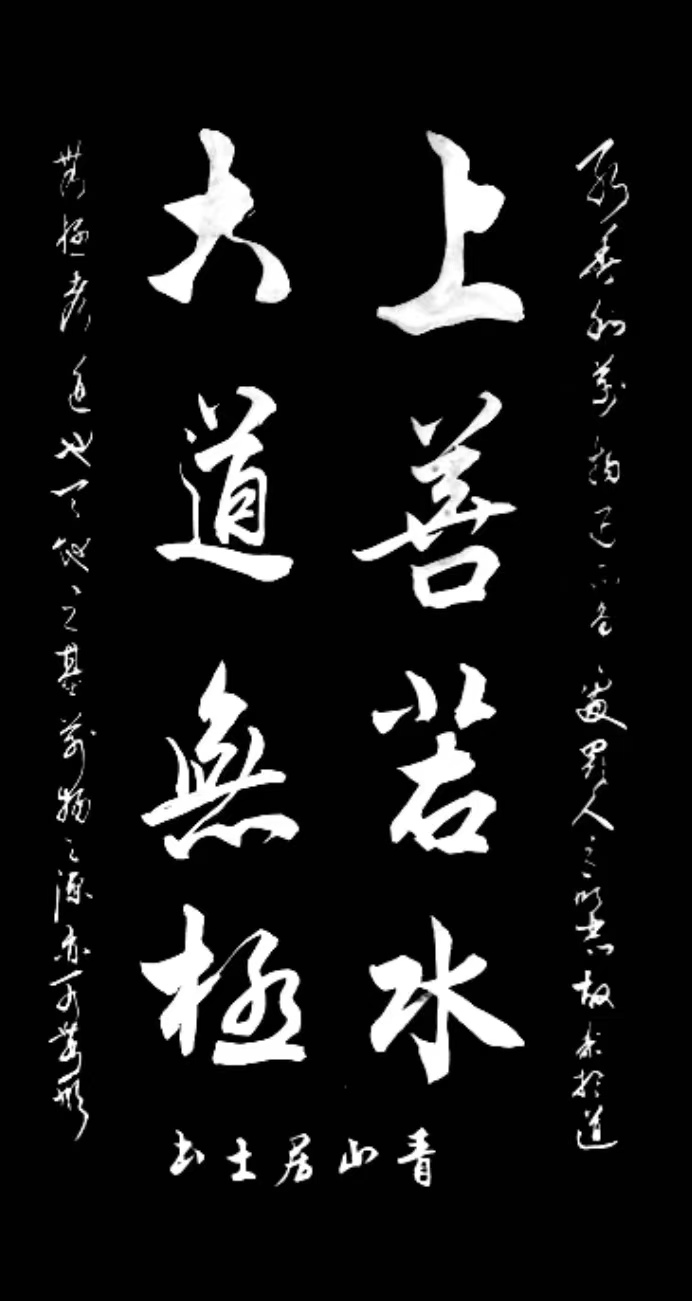 善利萬物而不爭處眾人之所惡故於道
上善若水
大道無極
無極者道也天地之基萬物之源亦可無形
青山居士书